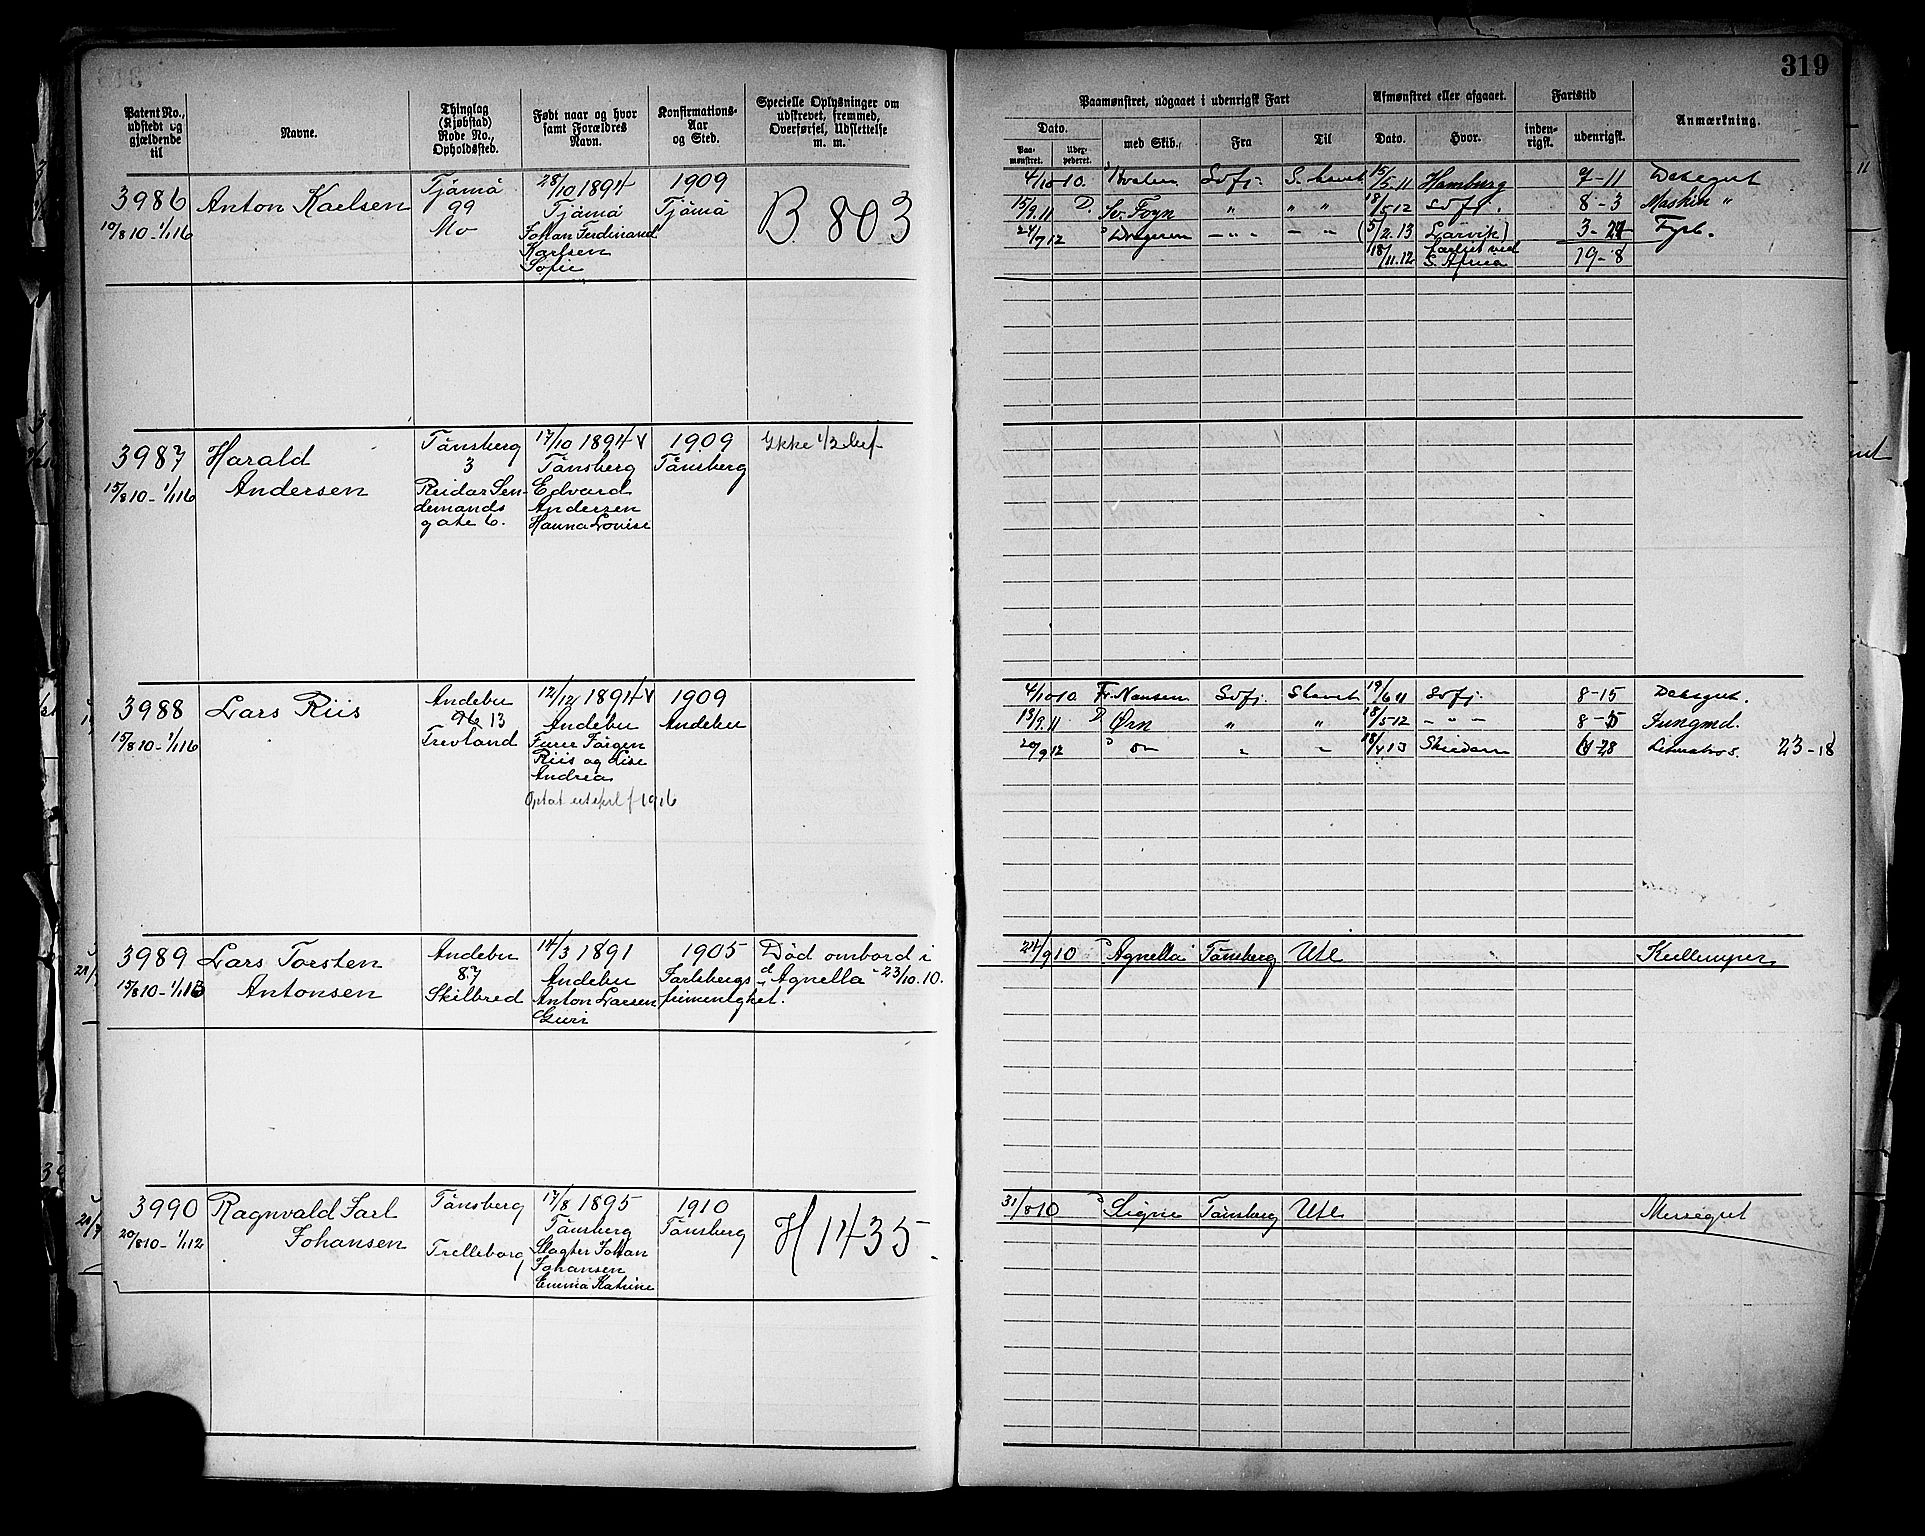 319
Patent No., udstedt og gjældende til
Navne.
Thinglag (Kjøbstad) Rode No., Opholdssted.
Født naar og hvor samt Forældres Navn.
Konfirmations-Aar og Sted.
Specielle Oplysninger om udskrevet, fremmed, Overførsel, Udslettelse m. m.
Paamønstret, udgaaet i udenrigsk Fart
Dato.
Paamønstret.
Uderpederet.
med Skib.
Fra
Til
Afmønstret eller afgaaet.
Dato.
Hvor.
Fartstid
indenrigsk.
udenrigsk.
Anmærkning.
3986
10/8 10 - 1/1 16
Anton Karlsen
Tjømø
99
Mo
28/10 1894
Tjømø
Johan Ferdinand
Karlsen
Sofie
1909
Tjømø
B 803
4/10 10. Hvalen Sdfj. S. Havet 15/5 11 Hamburg 7-11 Deksgut
15/9 11 D. Sv. Foyn " " " 18/5 12 Sdfj. 8-3 Maskin "
24/7 12 (5/2.13 Larvik) Fyrb.
18/11.12 forlist ved S. Africa 19-8
3987
15/8 10 - 1/1 16
Harald
Andersen
Tønsberg
3
Reidar Sen-
demands
gate 6.
17/10 1894 v
Tønsberg
Edvard
Andersen
Hanna Lovise
1909
Tønsberg
Ikke 1/2 bef
3988
15/8 10 - 1/1 16
Lars Riis
Andebu
96 13
Trevland
12/12 1894 v
Andebu
Jørgen
Riis og Lise
Andrea
1916
1909
Andebu
4/10 10. Fr. Nansen Sdfj. S havet 19/6 11 Sdfj. 8-15 Deksgut.
13/9.11 D Ørn " " 18/5 12 - " - Jungmd.
20/9 12 " " 18/4 13 Skiedam 23-18
3989
15/8 10 - 1/1 13
Lars Torsten
Antonsen
Andebu
87
Skilbred
14/3 1891
Andebu
Anton Larsen
Guri
1905
Jarlsbergs
frimenighet.
Død ombord i
d/s "Agnella" 23/10.10.
24/9 10 D Agnella Tønsberg Ute Kullemper
3990
20/8 10 - 1/1 12
Ragnvald Jarl
Johansen
Tønsberg
Trelleborg
17/8 1895
Tønsberg
Slagter Johan
Johansen
Emma Katrine
1910
Tønsberg
H 1435
31/8 10 D Signe Tønsberg Ute Messegut